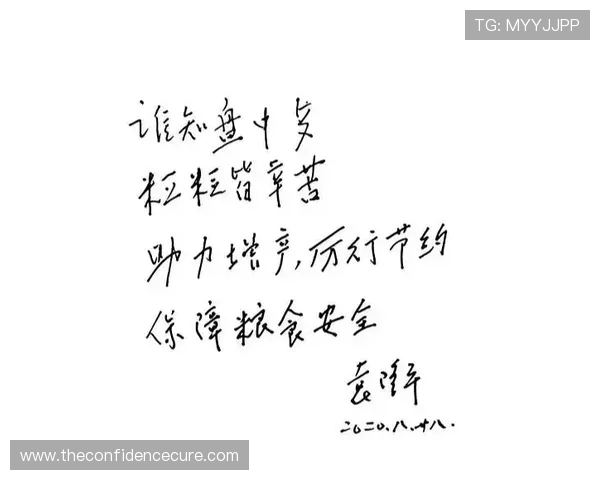 TG: MYYJJPP
谁知盘中歺
粒粒皆辛苦
助力增产,厉行节约
保障粮食安全
袁隆平
2020.八.廿八.
www.theconfidencecure.com